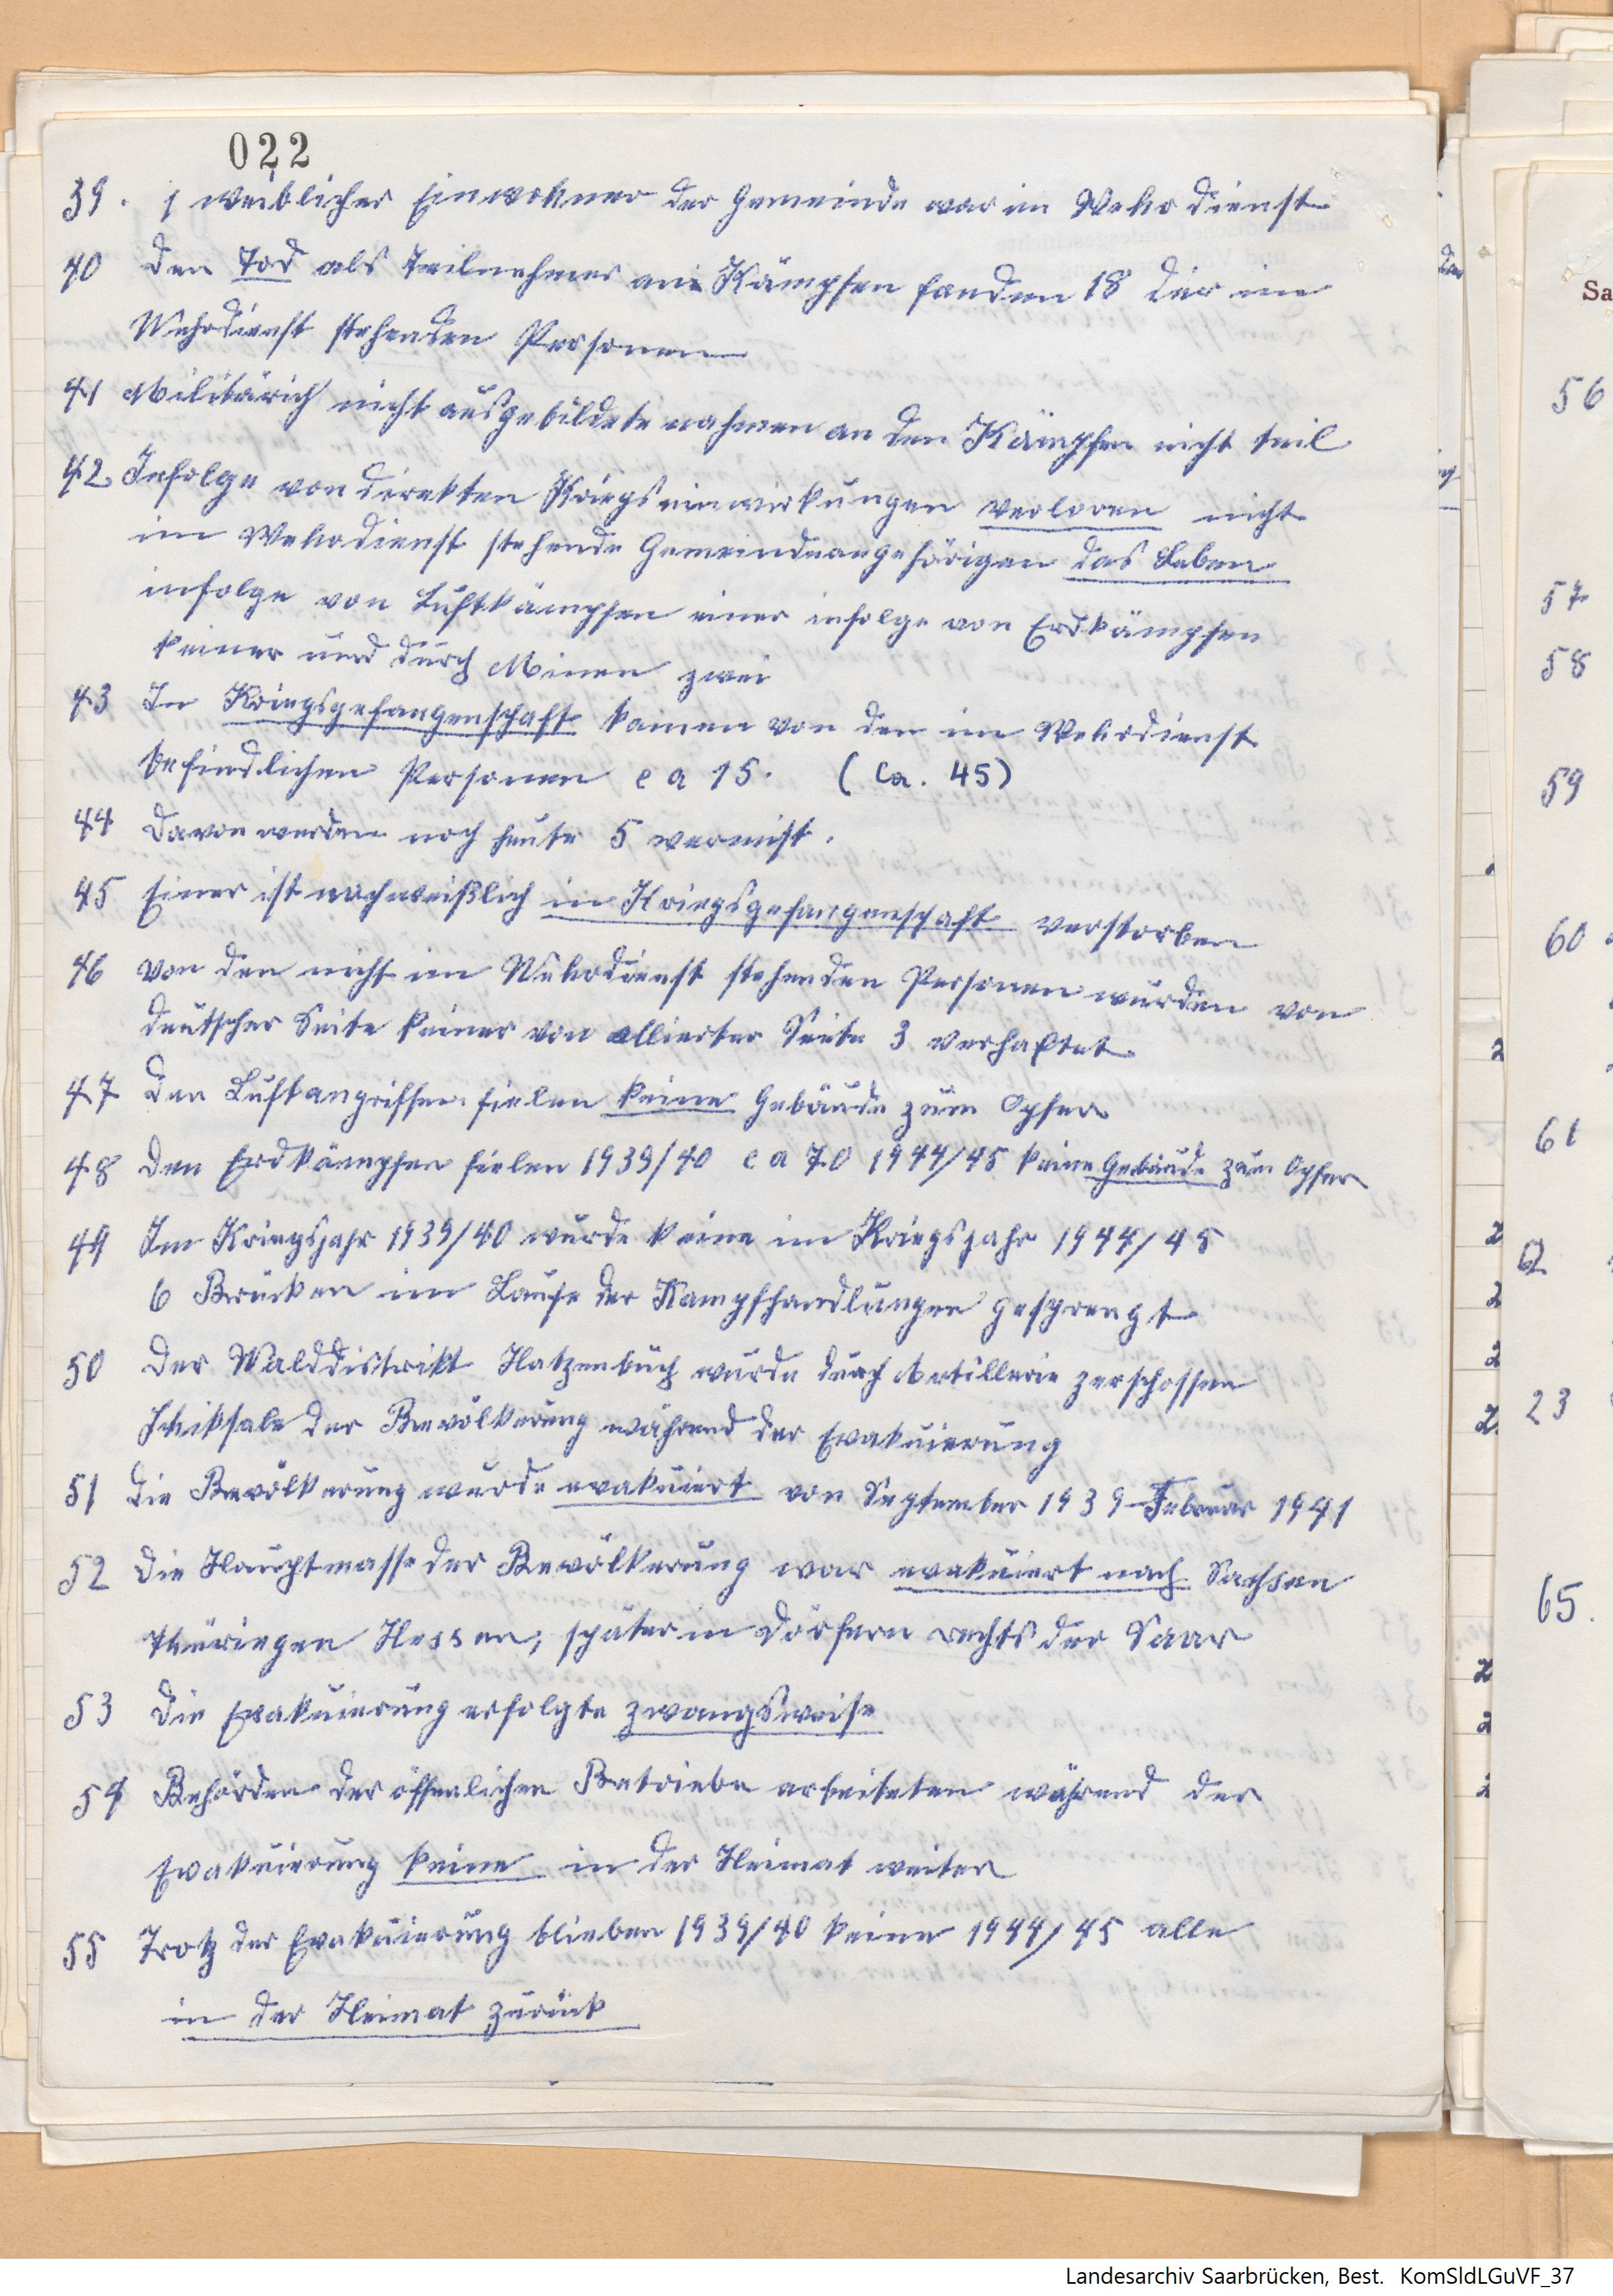 022
39. 1 weiblicher Einwohner der Gemeinde war im Wehrdienst
40 Den Tod als Teilnehmer an Kämpfen fanden 18 der im
Wehrdienst stehenden Personen
41 Militärich nicht ausgebildete nahmen an den Kämpfen nicht teil
42. Infolge von direkten Kriegseinwirkungen verloren nicht
im Wehrdienst stehende Gemeindeangehörigen das Leben
infolge von Luftkämpfen einer infolge von Erdkämpfen
keiner und durch Minen zwei
43 In Kriegsgefangenschaft kamen von den im Wehrdienst
befindlichen Personen ca 15. (Ca. 45)
44 Davon werden noch heute 5 vermist.
45 Einer ist nachweißlich in Kriegsgefangenschaft verstorben
46 Von den nicht im Wehrdienst stehenden Personen wurden von
deutscher Seite keiner von allierter Seite 3 verhaftet
47 Den Luftangriffen fielen keine Gebäude zum Opfer
48 Den Erdkämpfen fielen 1939/40 ca 70 1944/45 keine Gebäude zum Opfer
49 Im Kriegsjahr 1939/40 wurde keine im Kriegsjahr 1944/45
6 Brücken im Laufe der Kampfhandlungen gesprengt
50 Der Walddistrikt Hatzenbüch wurde durch Artillerie zerschossen
Schiksale der Bevölkerung während der Evakuierung
51 Die Bevölkerung wurde evakuiert von September 1939-Februar 1941
52 Die Hauptmasse der Bevölkerung war evakuiert nach Sachsen
Thüringen Hessen, später in Dörfern rechts der Saar
53 Die Evakuierung erfolgte zwangsweise
54 Behörden der öffenlichen Betriebe arbeiteten während der
Evakuierung keine in der Heimat weiter
55 Trotz der Evakuierung blieben 1939/40 keine 1944/45 alle
in der Heimat zurück
Sa
56
57
58
59
60
61
62
23
65.
Landesarchiv Saarbrücken, Best. KomSldLGuVF_37